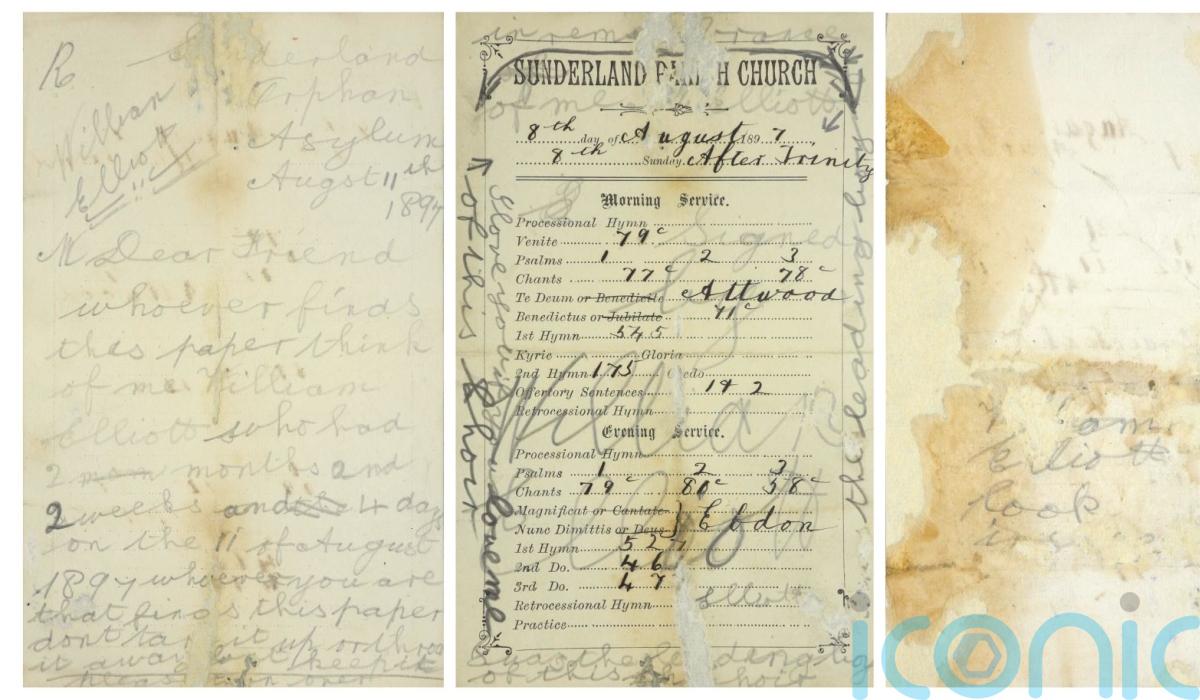 R
Sunderland
Orphan
Asylum
Augst 11th
1897
William
Elliott
M Dear Friend
whoever finds
this paper think
of me William
Elliott who had
2 mon months and
2 weeks and 4 days
on the 11 of August
1897 whoever you are
that finds this paper
dont tar it up or throw
it away but keep it
please turn over
in rememberance
of me W Elliott
SUNDERLAND PARISH CHURCH
8th day of August 1897
8th Sunday After Trinity
Morning Service.
Processional Hymn
Venite 79c
Psalms 1 2 3
Chants 77c 78c
Te Deum or Benedicite Attwood
Benedictus or Jubilate 71c
1st Hymn 545
Kyrie Gloria
2nd Hymn 175 Credo
Offertory Sentences 1 & 2
Retrocessional Hymn
Evening Service.
Processional Hymn
Psalms 1 2 3
Chants 79c 80c 58c
Magnificat or Cantate
Nunc Dimittis or Deus } Ebdon
1st Hymn 527
2nd Do. 46
3rd Do. 47
Retrocessional Hymn Elliott
Practice
of this choir
I love you if you love me
the leading boy
Signed
of this choir
am
Elliott
look
iconic